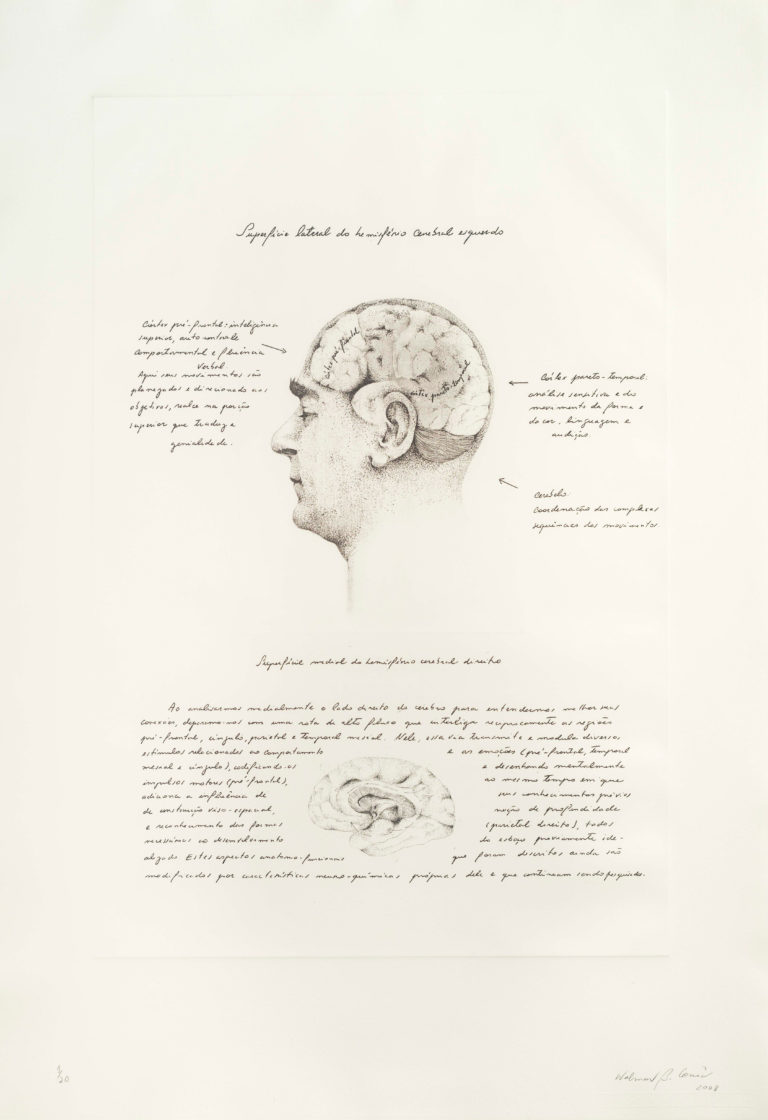 Superfície lateral do hemisfério cerebral esquerdo
Córtex pré-frontal: inteligência
superior, auto controle
comportamental e fluência
verbal
Aqui seus movimentos são
planejados e direcionado aos
objetivos, realce na porção
superior que traduz a
genialidade.
córtex pré-frontal
córtex parieto-temporal
Córtex parieto-temporal:
análise sensitiva e dos
movimento da forma e
da cor, linguagem e
audição
Cerebelo:
Coordenação das complexas
sequências dos movimentos
Superfície medial do hemisfério cerebral direito
Ao analisarmos medialmente o lado direito do cérebro para entendermos melhor suas
conexões, deparamo-nos com uma rota de alto fluxo que interliga reciprocamente as regiões
pré-frontal, cíngulo, parietal e temporal mesial. Nele, essa via transmite e modula diversos
estímulos relacionados ao comportamento e as emoções (pré-frontal, temporal
mesial e cíngulo), codificando os e desenhando mentalmente
impulsos motores (pré-frontal), ao mesmo tempo em que
adiciona a influência de seus conhecimentos prévios
de construção viso-espacial, noção de profundidade
e reconhecimento das formas (parietal direito), todos
necessários ao desenvolvimento do esboço previamente ide-
alizado. Estes aspectos anatomo-funcionais que foram descritos ainda são
modificados por características neuro-químicas próprias dele e que continuam sendo pesquisadas.
1/20
2008